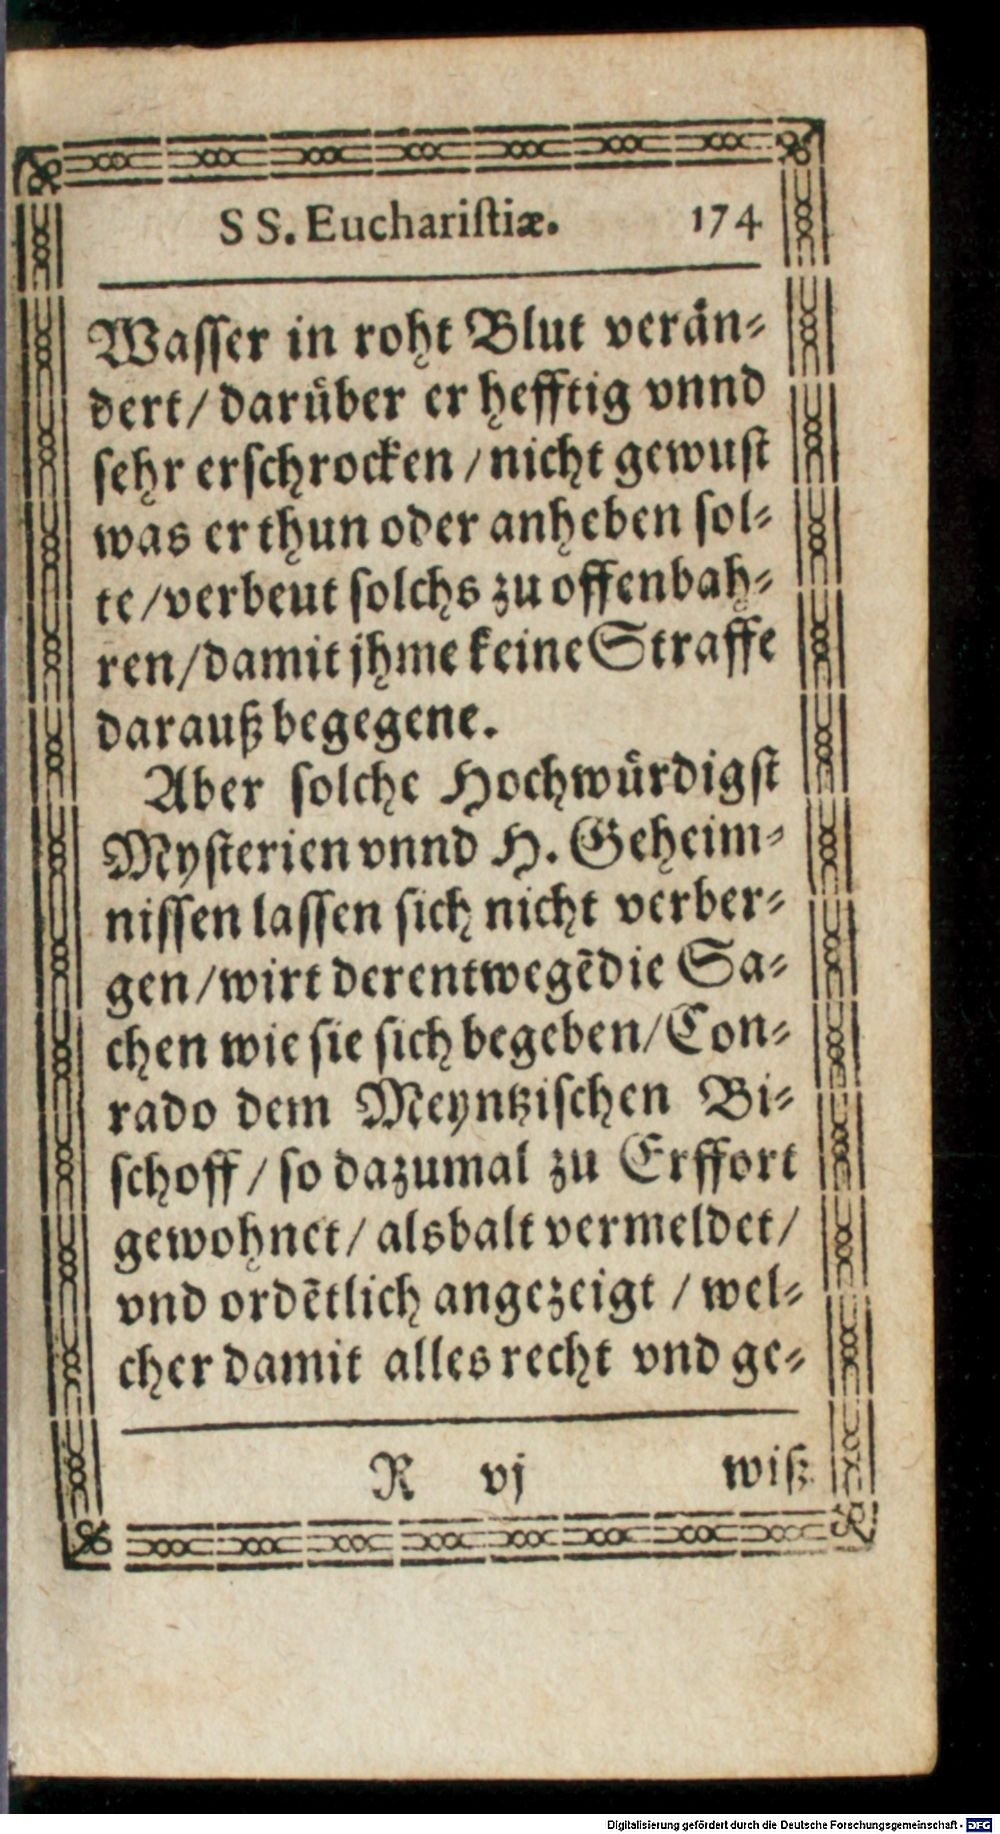 SS. Euchariſtiæ. 174
Waſſer in roht Blut verän⸗
dert/ darüber er hefftig vnnd
ſehr erſchrocken / nicht gewuſt
was er thun oder anheben ſol⸗
te /verbeut ſolchs zu offenbah⸗
ren/damit jhme keine Straffe
darauß begegene.
Aber ſolche Hochwürdigſt
Myſterien vnnd H. Geheim⸗
niſſen laſſen ſich nicht verber⸗
gen/wirt derentwegẽ die Sa⸗
chen wie ſie ſich begeben/Con⸗
rado dem Meyntziſchen Bi⸗
ſchoff/ ſo dazumal zu Erffort
gewohnet/ alsbalt vermeldet/
vnd ordẽtlich angezeigt / wel⸗
cher damit alles recht vnd ge⸗
R vj wiß
Digitalisierung gefördert durch die Deutsche Forschungsgemeinschaft - DFG